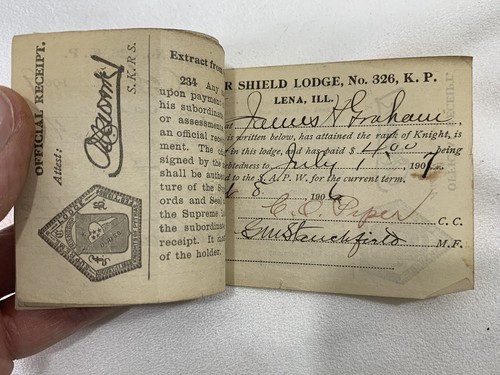 OFFICIAL RECEIPT.
Attest:
S.K.R.S.
Extract from
234 Any
upon payment of
his subordinate
or assessment
an official receipt
ment. The
signed by the
shall be authe
ture of the Sup
ords and Seal
the Supreme
the subordinate
receipt. It
of the holder.
R SHIELD LODGE, No. 326, K. P.
LENA, ILL.
at James H Graham,
is written below, has attained the rank of Knight, is
in this lodge, and has paid $ 4.00 being
ebtedness to July 1st 1907,
ed to the S. A. P. W. for the current term.
8 1906
C. O. Piper
C. C.
M. F.
OFFICIAL RECEIPT.